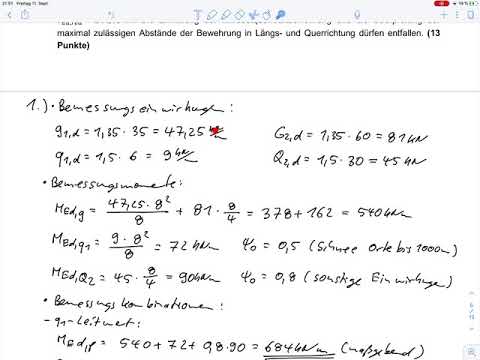 21:51 Freitag 11. Sept.
maximal zulässigen Abstände der Bewehrung in Längs- und Querrichtung dürfen entfallen. (13
Punkte)
1.) • Bemessungseinwirkungen:
g1,d = 1,35 · 35 = 47,25 kN/m G2,d = 1,35 · 60 = 81 kN
q1,d = 1,5 · 6 = 9 kN/m Q2,d = 1,5 · 30 = 45 kN
• Bemessungsmomente:
MEd,g = 47,25 · 8²/8 + 81 · 8/4 = 378 + 162 = 540 kNm
MEd,q1 = 9 · 8²/8 = 72 kNm ψ0 = 0,5 (Schnee Orte bis 1000m)
MEd,Q2 = 45 · 8/4 = 90 kNm ψ0 = 0,8 (sonstige Einwirkungen)
• Bemessungskombinationen:
- q1 - Leitwert:
MEd,1 = 540 + 72 + 0,8 · 90 = 684 kNm (maßgebend)